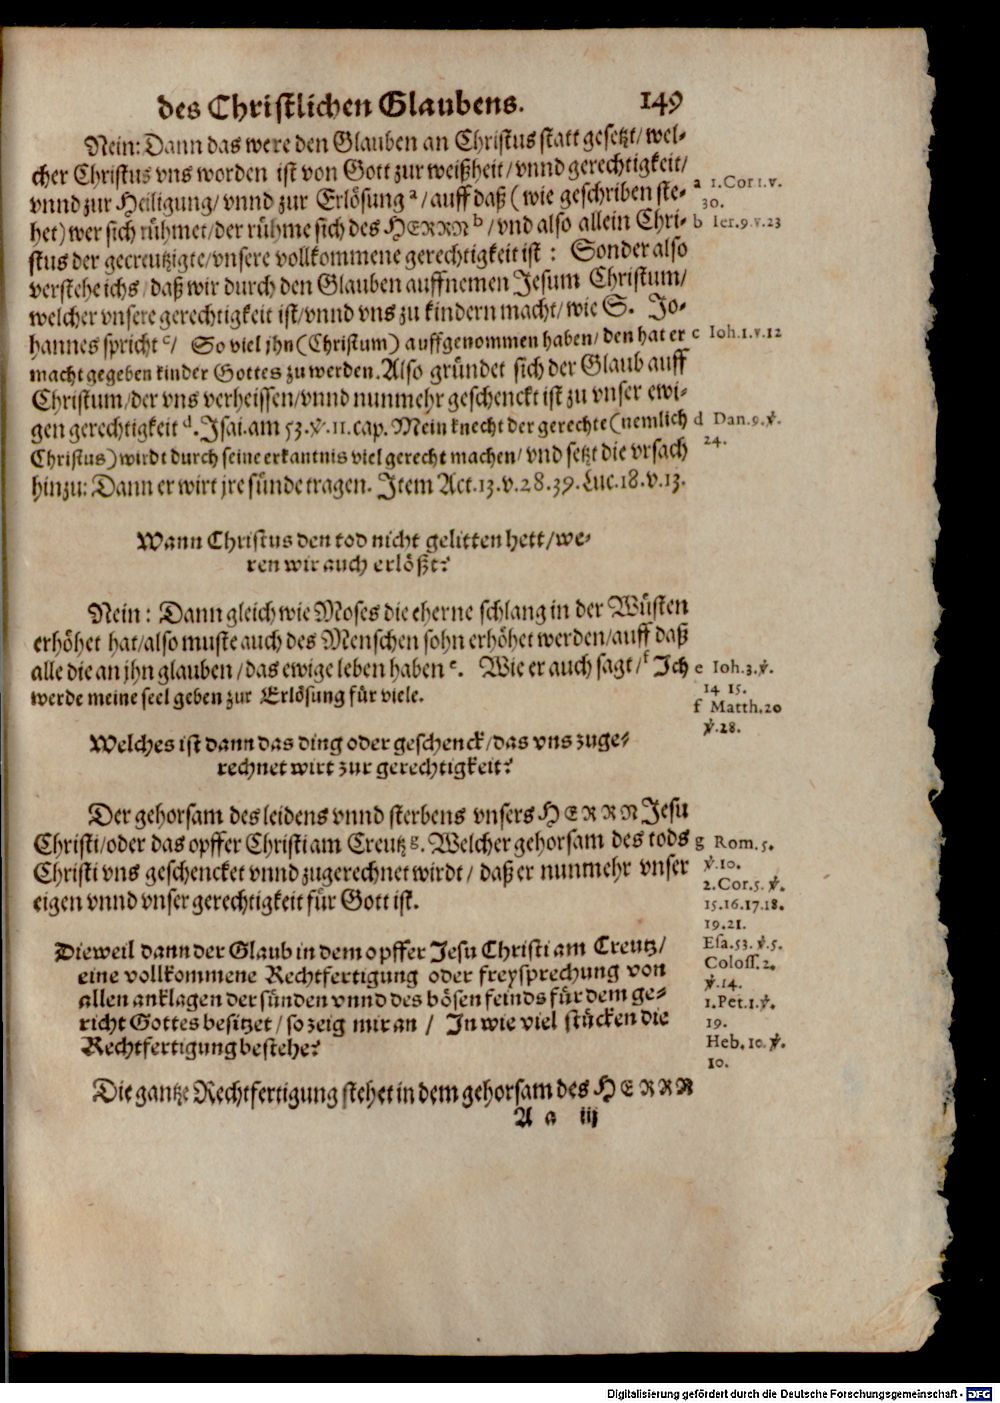 des Christlichen Glaubens. 149
Nein: Dann das were den Glauben an Christus statt gesetzt/ wel-
cher Christus vns worden ist von Gott zur weißheit/ vnnd gerechtigkeit/
vnnd zur Heiligung/ vnnd zur Erlösung a/ auff daß (wie geschriben ste-
het) wer sich rühmet/ der rühme sich des HERRN b/ vnd also allein Chri-
stus der gecreutzigte/ vnsere vollkommene gerechtigkeit ist: Sonder also
verstehe ichs/ daß wir durch den Glauben auffnemen Jesum Christum/
welcher vnsere gerechtigkeit ist/ vnnd vns zu kindern macht/ wie S. Jo-
hannes spricht c/ So viel jhn (Christum) auffgenommen haben/ den hat er
macht gegeben kinder Gottes zu werden. Also gründet sich der Glaub auff
Christum/ der vns verheissen/ vnnd nunmehr geschenckt ist zu vnser ewi-
gen gerechtigkeit d. Isai. am 53. ℣. 11. cap. Mein knecht der gerechte (nemlich
Christus) wirdt durch seine erkantnis viel gerecht machen/ vnd setzt die vrsach
hinzu: Dann er wirt jre sünde tragen. Item Act. 13. v. 28. 39. Luc. 18. v. 13.
a 1. Cor 1. v.
30.
b Ier. 9. v. 23
c Ioh. 1. v. 12
d Dan. 9. ℣.
24.
Wann Christus den tod nicht gelitten hett/ we-
ren wir auch erlößt?
Nein: Dann gleich wie Moses die eherne schlang in der Wüsten
erhöhet hat/ also muste auch des Menschen sohn erhöhet werden/ auff daß
alle die an jhn glauben/ das ewige leben haben e. Wie er auch sagt/ f Ich
werde meine seel geben zur Erlösung für viele.
e Ioh. 3. ℣.
14 15.
f Matth. 20
℣. 28.
Welches ist dann das ding oder geschenck/ das vns zuge-
rechnet wirt zur gerechtigkeit?
Der gehorsam des leidens vnnd sterbens vnsers HERRN Jesu
Christi/ oder das opffer Christi am Creutz g. Welcher gehorsam des tods
Christi vns geschencket vnnd zugerechnet wirdt/ daß er nunmehr vnser
eigen vnnd vnser gerechtigkeit für Gott ist.
g Rom. 5.
℣. 10.
2. Cor. 5. ℣.
15. 16. 17. 18.
19. 21.
Esa. 53. ℣. 5.
Coloss. 2.
℣. 14.
1. Pet. 1. ℣.
19.
Heb. 10. ℣.
10.
Dieweil dann der Glaub in dem opffer Jesu Christi am Creutz/
eine vollkommene Rechtfertigung oder freysprechung von
allen anklagen der sünden vnnd des bösen feinds für dem ge-
richt Gottes besitzet/ so zeig mir an/ In wie viel stücken die
Rechtfertigung bestehe?
Die gantze Rechtfertigung stehet in dem gehorsam des HERRN
A a iij
Digitalisierung gefördert durch die Deutsche Forschungsgemeinschaft - DFG